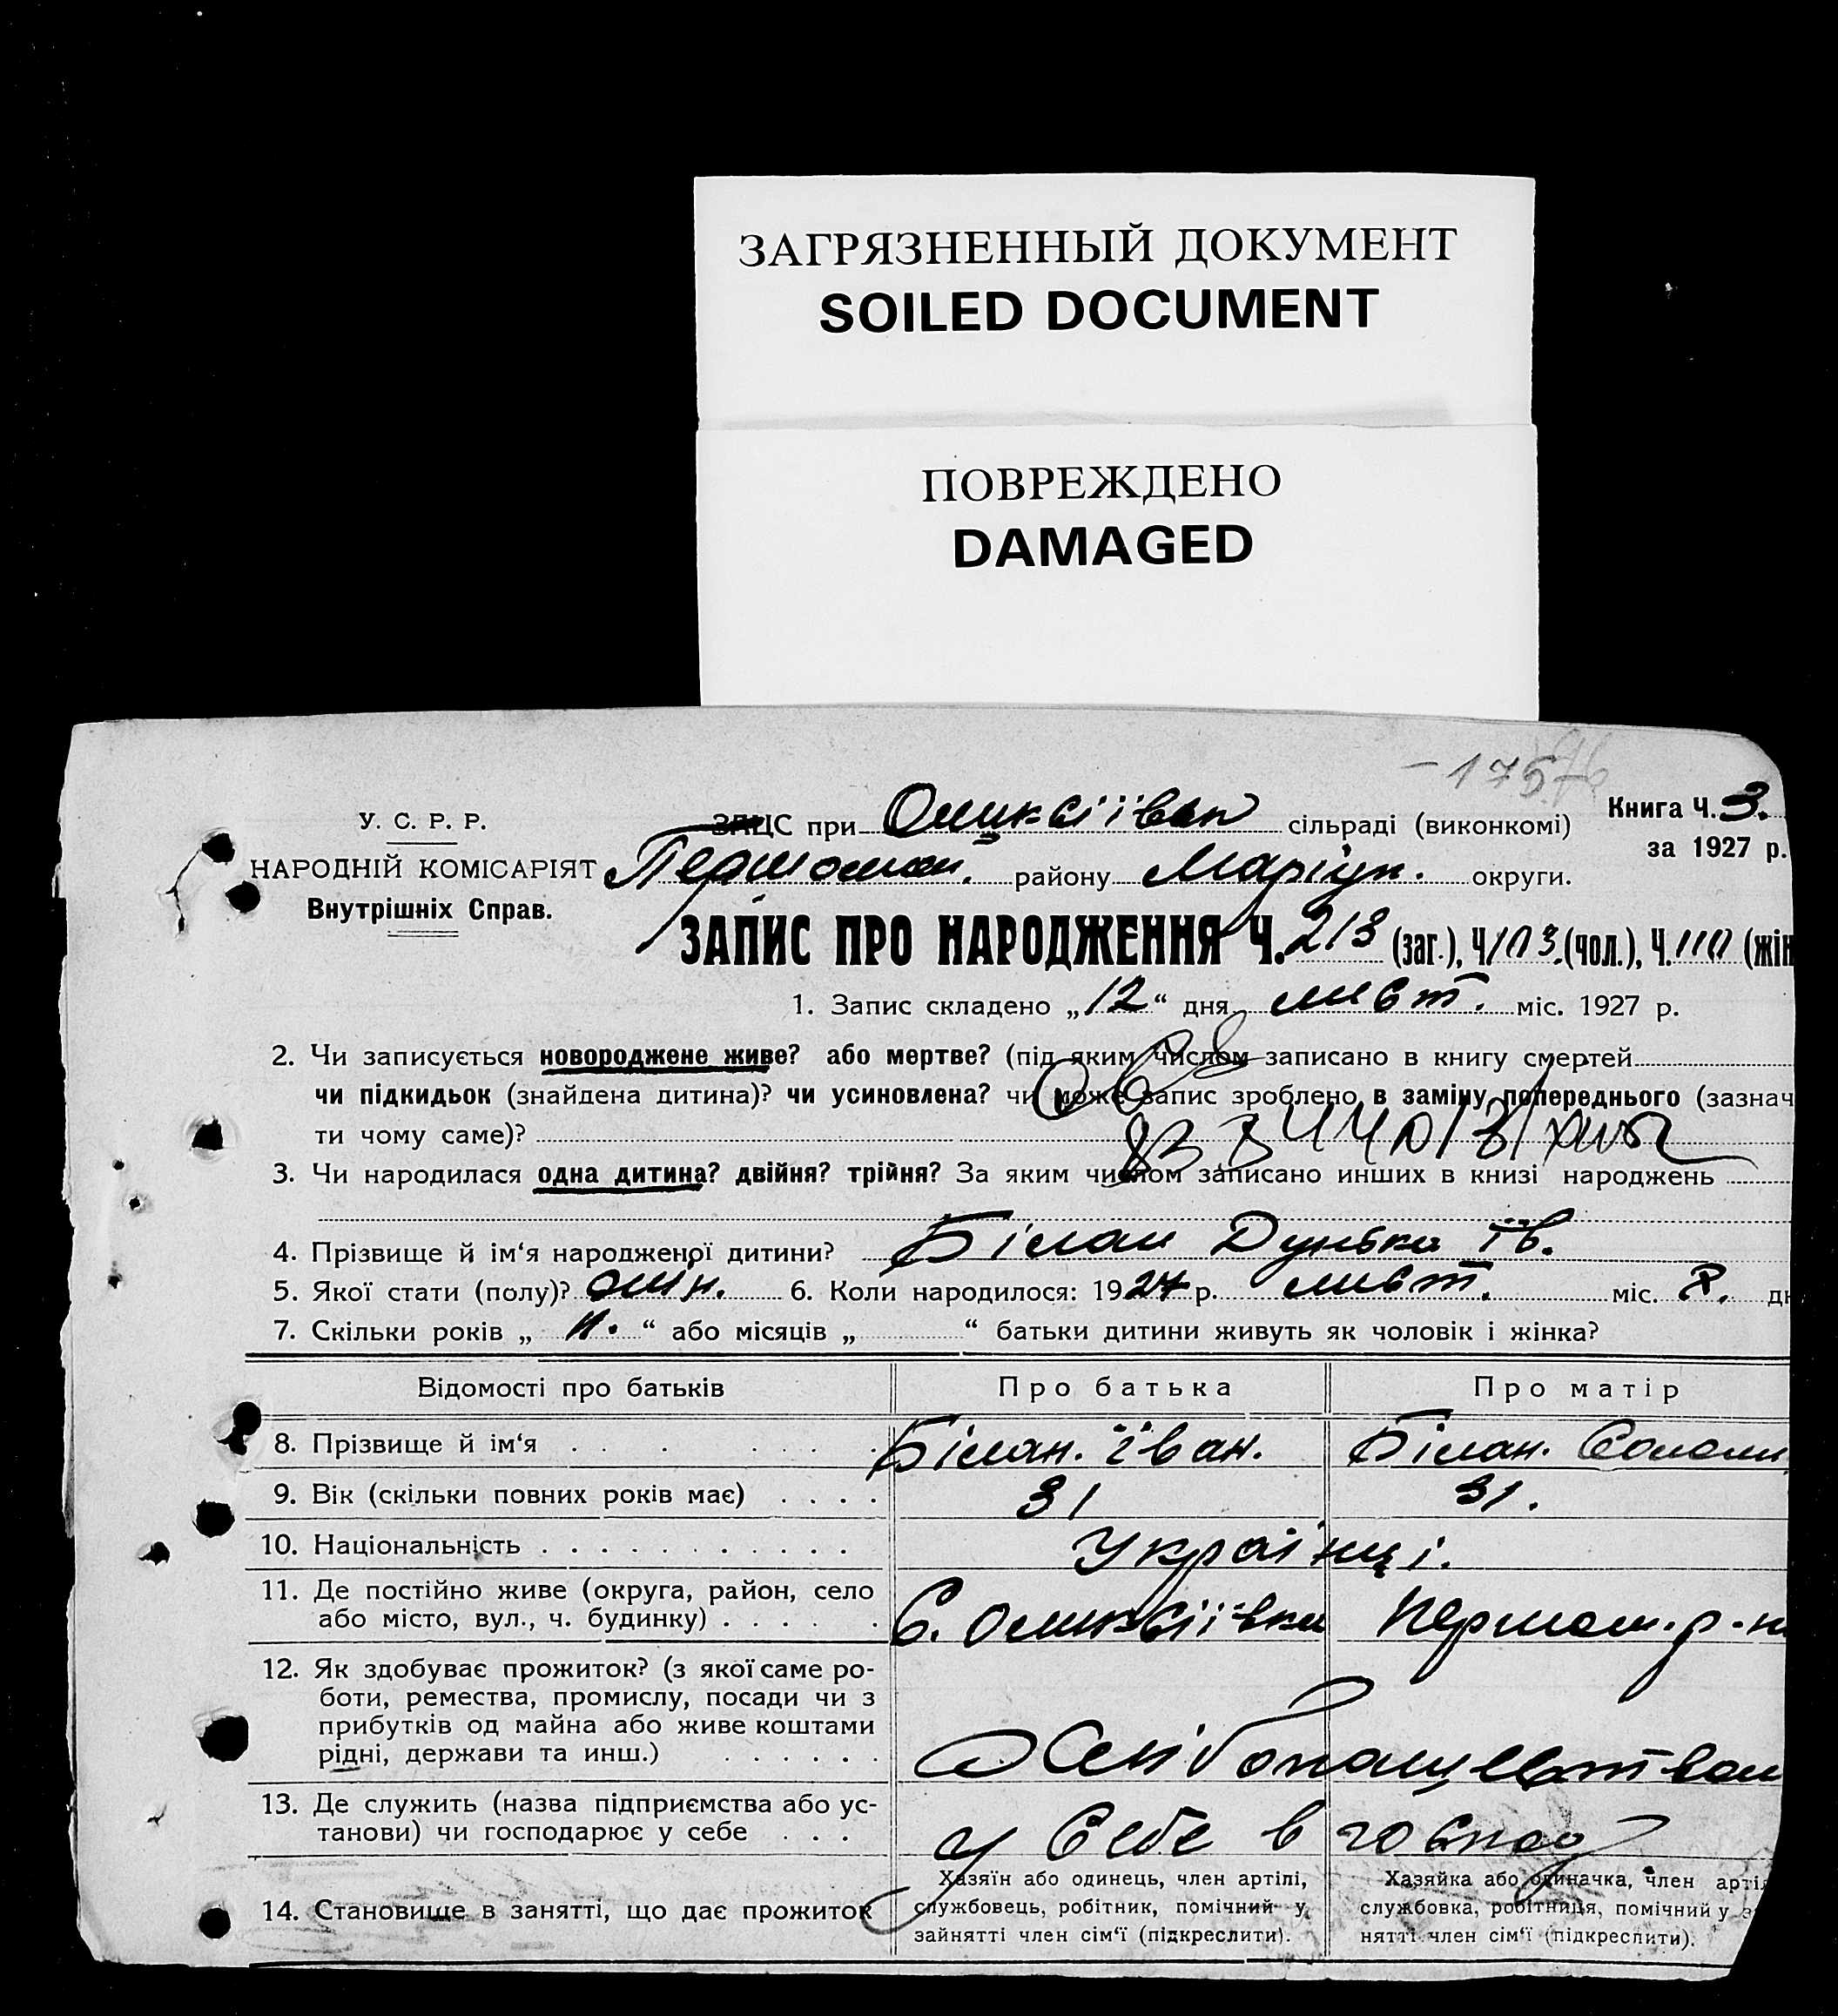 ЗАГРЯЗНЕННЫЙ ДОКУМЕНТ
SOILED DOCUMENT
ПОВРЕЖДЕНО
DAMAGED
У. С. Р. Р.
НАРОДНІЙ КОМІСАРІЯТ
Внутрішніх Справ.
ЗАЦС при сільраді (виконкомі)
Книга Ч. 3.
за 1927 р.
району Маріуп. округи.
ЗАПИС ПРО НАРОДЖЕННЯ Ч. 213 (заг.), Ч. 103 (чол.), Ч. 110 (жін
1. Запис складено „12“ дня лист. міс. 1927 р.
2. Чи записується новороджене живе? або мертве? (під яким числом записано в книгу смертей
чи підкидьок (знайдена дитина)? чи усиновлена? чи може запис зроблено в заміну попереднього (зазнач
ти чому саме)?
3. Чи народилася одна дитина? двійня? трійня? За яким числом записано инших в книзі народжень
4. Прізвище й ім‘я народженої дитини? Білан Дунька Ів.
5. Якої стати (полу)? 6. Коли народилося: 1927 р. лист. міс. 8. дн
7. Скільки років „ “ або місяців „ “ батьки дитини живуть як чоловік і жінка?
Відомості про батьків
Про батька
Про матір
8. Прізвище й ім‘я Білан. Іван. Білан.
9. Вік (скільки повних років має) 31 31.
10. Національність Українці.
11. Де постійно живе (округа, район, село
або місто, вул., ч. будинку) С.
12. Як здобуває прожиток? (з якої саме ро-
боти, ремества, промислу, посади чи з
прибутків од майна або живе коштами
рідні, держави та инш.)
13. Де служить (назва підприємства або ус-
танови) чи господарює у себе у себе в
14. Становище в занятті, що дає прожиток
Хазяїн або одинець, член артілі,
службовець, робітник, помічний у
зайнятті член сім‘ї (підкреслити).
Хазяйка або одиначка, член артіл
службовка, робітниця, помічний у з
нятті член сім‘ї (підкреслити).